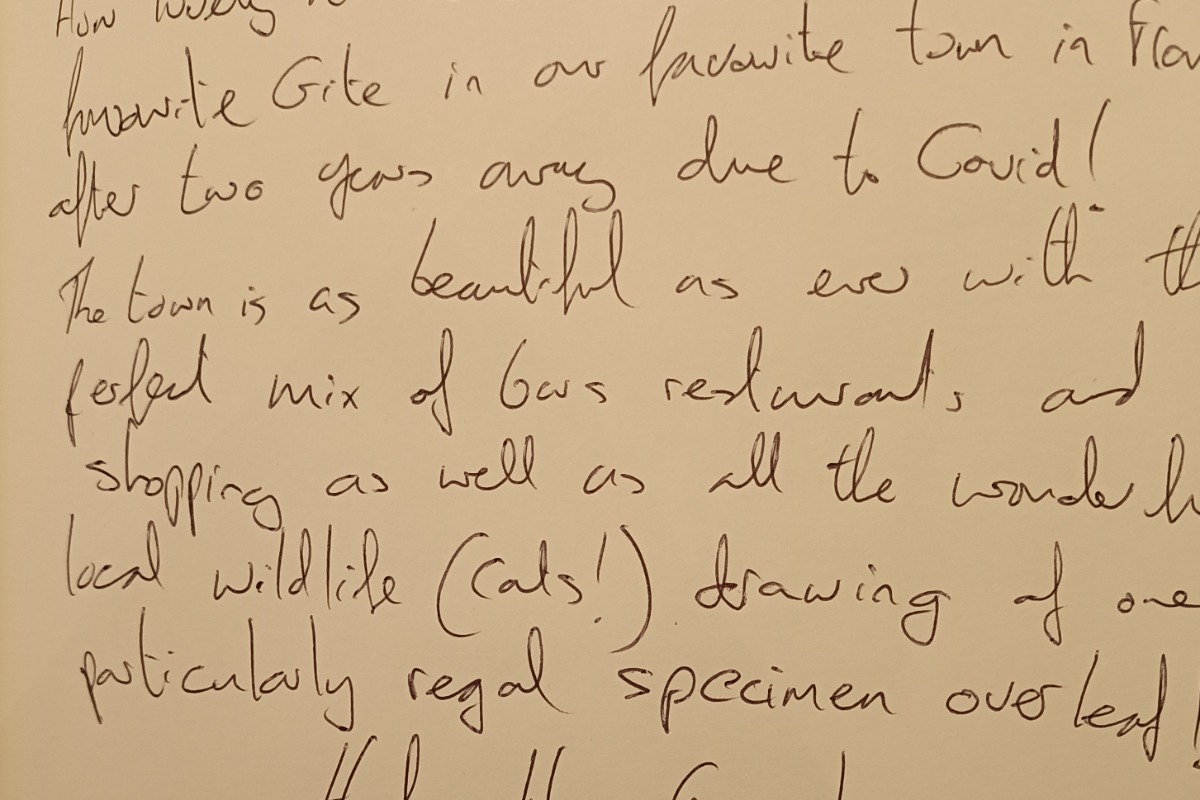 How lovely to
favourite Gite in our favourite town in
after two years away due to Covid!
The town is as beautiful as ever with
perfect mix of bars restaurants, and
shopping as well as all the
local wildlife (Cats!) drawing of one
particularly regal specimen overleaf!